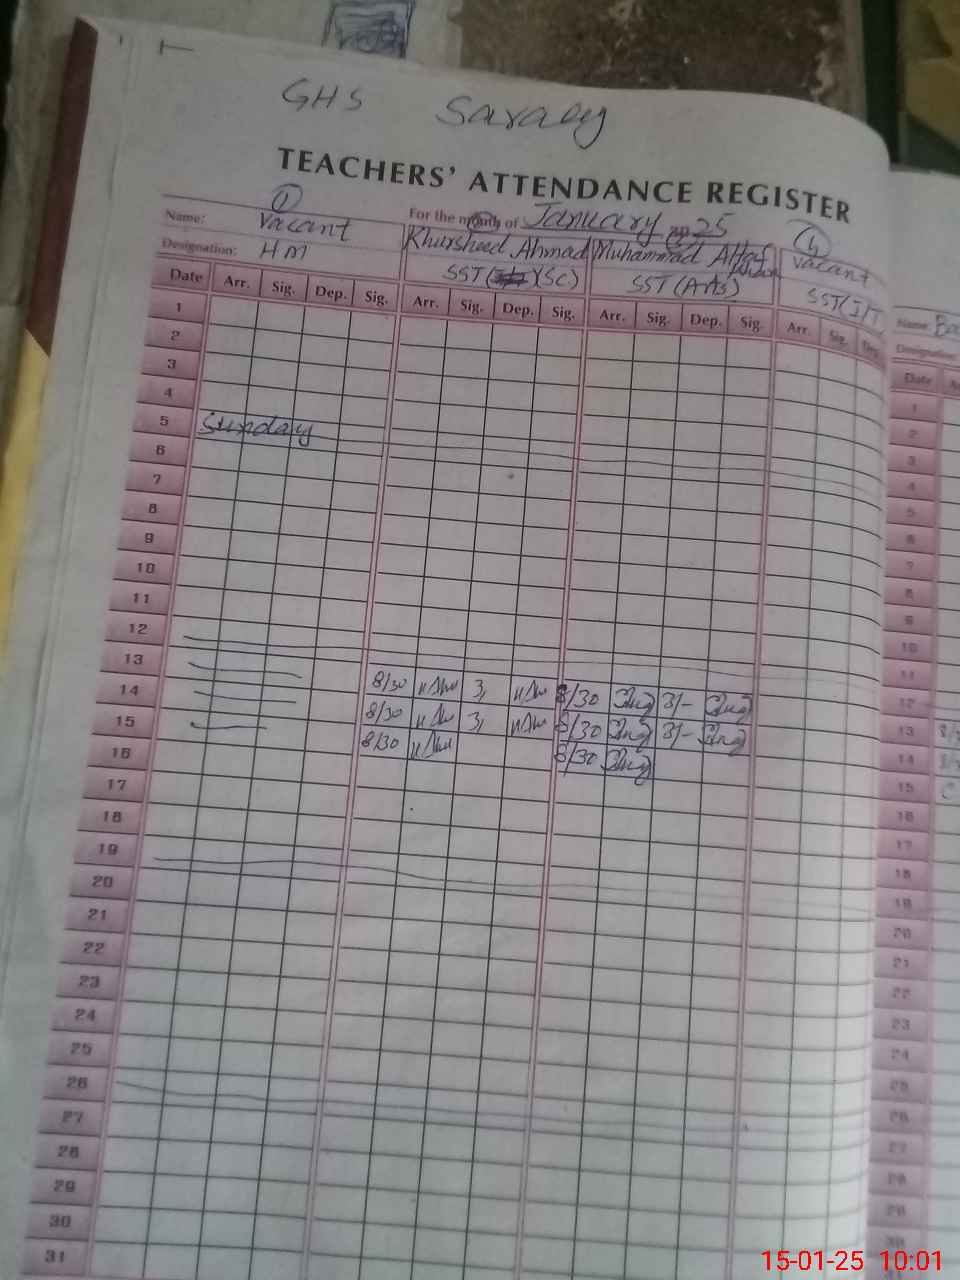 GHS Saraey
TEACHERS' ATTENDANCE REGISTER
For the month of January 25
Name: ① Vacant Khursheed Ahmad Muhammad Altaf ④ Vacant
Designation: HM SST (Sc) SST (A/As) SST (I/T
Date Arr. Sig. Dep. Sig. Arr. Sig. Dep. Sig. Arr. Sig. Dep. Sig. Arr. Sig. Dep.
1
2
3
4
5 Sunday
6
7
8
9
10
11
12
13 8/30 3, 8/30 3/-
14 8/30 3, 8/30 3/-
15 8/30 8/30
16
17
18
19
20
21
22
23
24
25
26
27
28
29
30
31
Name:
Designation:
Date
1
2
3
4
5
6
7
8
9
10
11
12
13
14
15
16
17
18
19
20
21
22
23
24
25
26
27
28
29
15-01-25 10:01